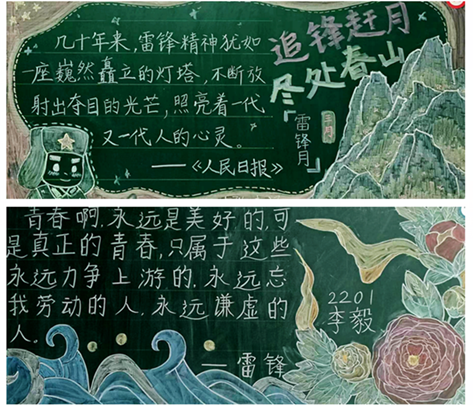 几十年来，雷锋精神犹如
一座巍然矗立的灯塔，不断放
射出夺目的光芒，照亮着一代
又一代人的心灵。
——《人民日报》
追锋赶月
冬处春山
「雷锋月」
三月
青春啊，永远是美好的，可
是真正的青春，只属于这些
永远力争上游的，永远忘
我劳动的人，永远谦虚的
人。
——雷锋
2201
李毅